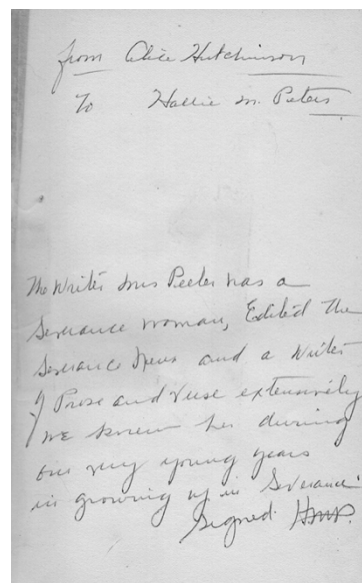 from Alice Hutchinson
To Hallie M. Peters
The Writer Mrs Peeler was a
Severance woman, Edited The
Severance News and a Writer
of Prose and Verse extensively
We knew her during
our very young years
in growing up in Severance.
Signed HMP.